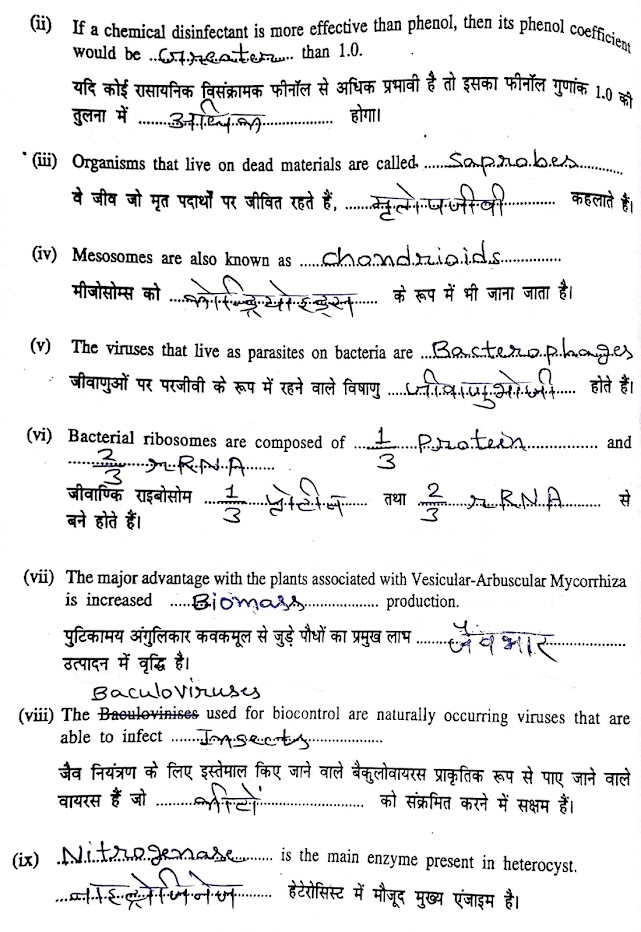 (ii) If a chemical disinfectant is more effective than phenol, then its phenol coefficient
would be ..Greater.... than 1.0.
यदि कोई रासायनिक विसंक्रामक फीनॉल से अधिक प्रभावी है तो इसका फीनॉल गुणांक 1.0 की
तुलना में ......अधिक................. होगा।
(iii) Organisms that live on dead materials are called ......Saprobes...........
वे जीव जो मृत पदार्थों पर जीवित रहते हैं, ......मृतोपजीवी............ कहलाते हैं।
(iv) Mesosomes are also known as .....Chondrioids...............
मीजोसोम्स को ....कोन्ड्रियोइड्स...... के रूप में भी जाना जाता है।
(v) The viruses that live as parasites on bacteria are ...Bacterophages
जीवाणुओं पर परजीवी के रूप में रहने वाले विषाणु .....जीवाणुभोजी..... होते हैं।
(vi) Bacterial ribosomes are composed of ...1/3 Protein................. and
......2/3 r-RNA.......
जीवाण्विक राइबोसोम ....1/3 प्रोटीन..... तथा 2/3 r RNA........ से
बने होते हैं।
(vii) The major advantage with the plants associated with Vesicular-Arbuscular Mycorrhiza
is increased .....Biomass................. production.
पुटिकामय अंगुलिकार कवकमूल से जुड़े पौधों का प्रमुख लाभ ......जैवभार..................
उत्पादन में वृद्धि है।
Baculoviruses
(viii) The Baculovinises used for biocontrol are naturally occurring viruses that are
able to infect .......Insects..................
जैव नियंत्रण के लिए इस्तेमाल किए जाने वाले बैकुलोवायरस प्राकृतिक रूप से पाए जाने वाले
वायरस हैं जो ........कीटों...................... को संक्रमित करने में सक्षम हैं।
(ix) .Nitrogenase....... is the main enzyme present in heterocyst.
...नाइट्रोजिनेज........ हेटेरोसिस्ट में मौजूद मुख्य एंजाइम है।